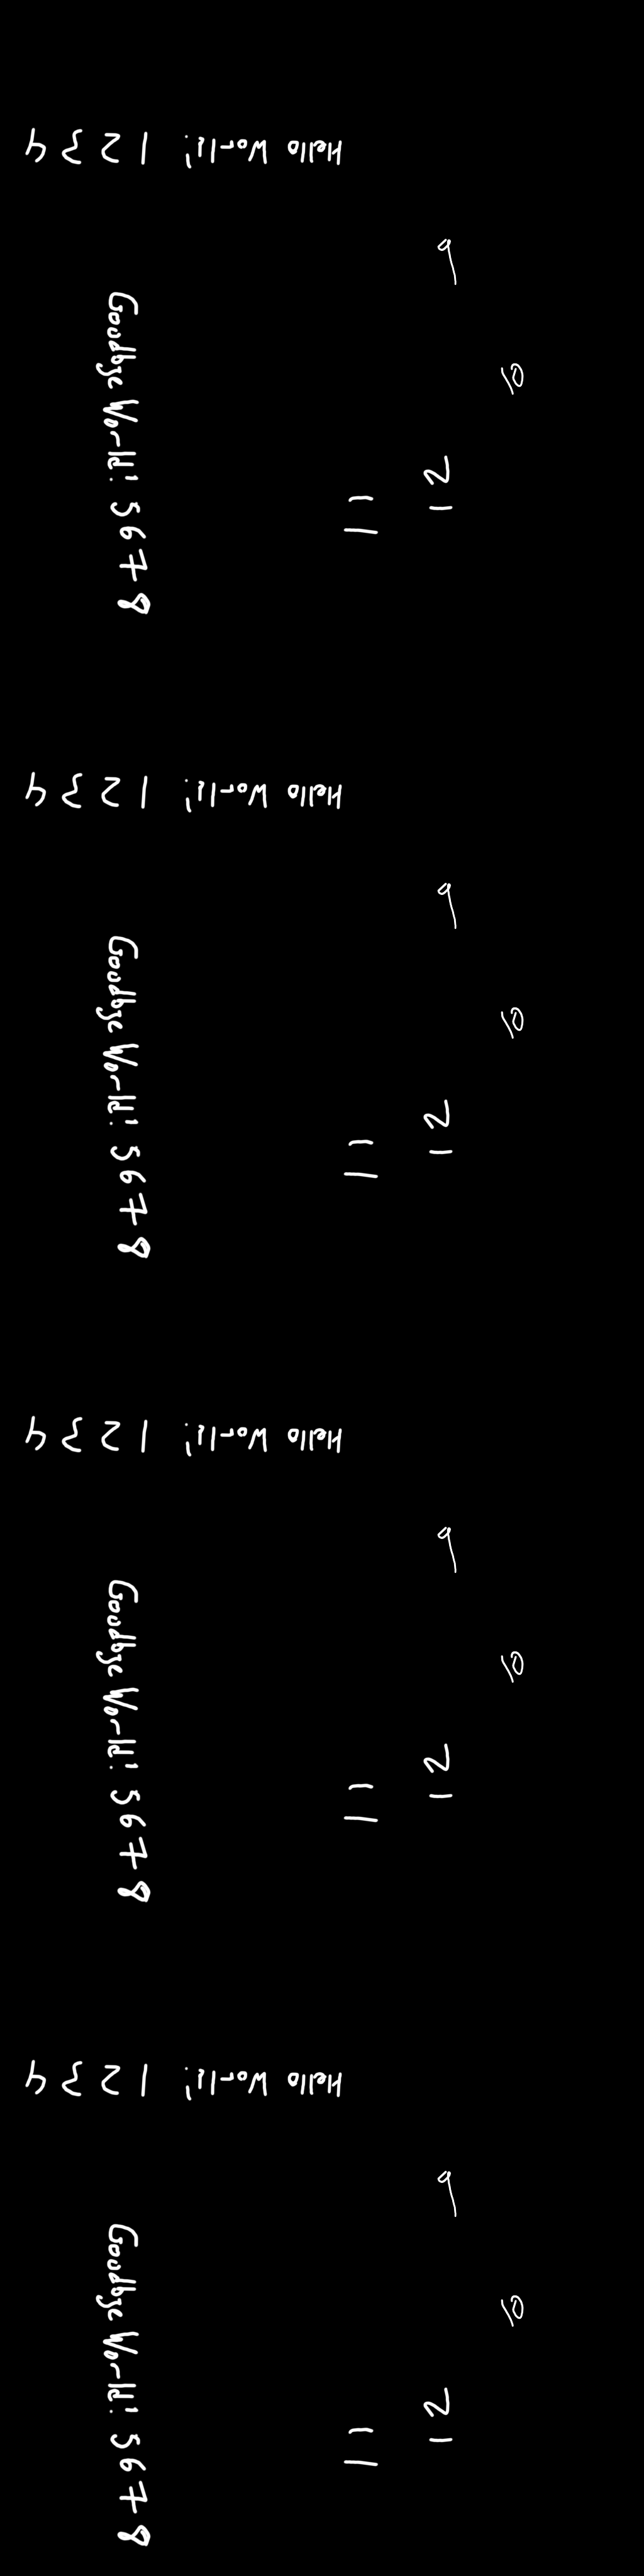 Hello World! 1 2 3 4
9
10
Goodbye World! 5 6 7 8
11
12
Hello World! 1 2 3 4
9
10
Goodbye World! 5 6 7 8
11
12
Hello World! 1 2 3 4
9
10
Goodbye World! 5 6 7 8
11
12
Hello World! 1 2 3 4
9
10
Goodbye World! 5 6 7 8
11
12